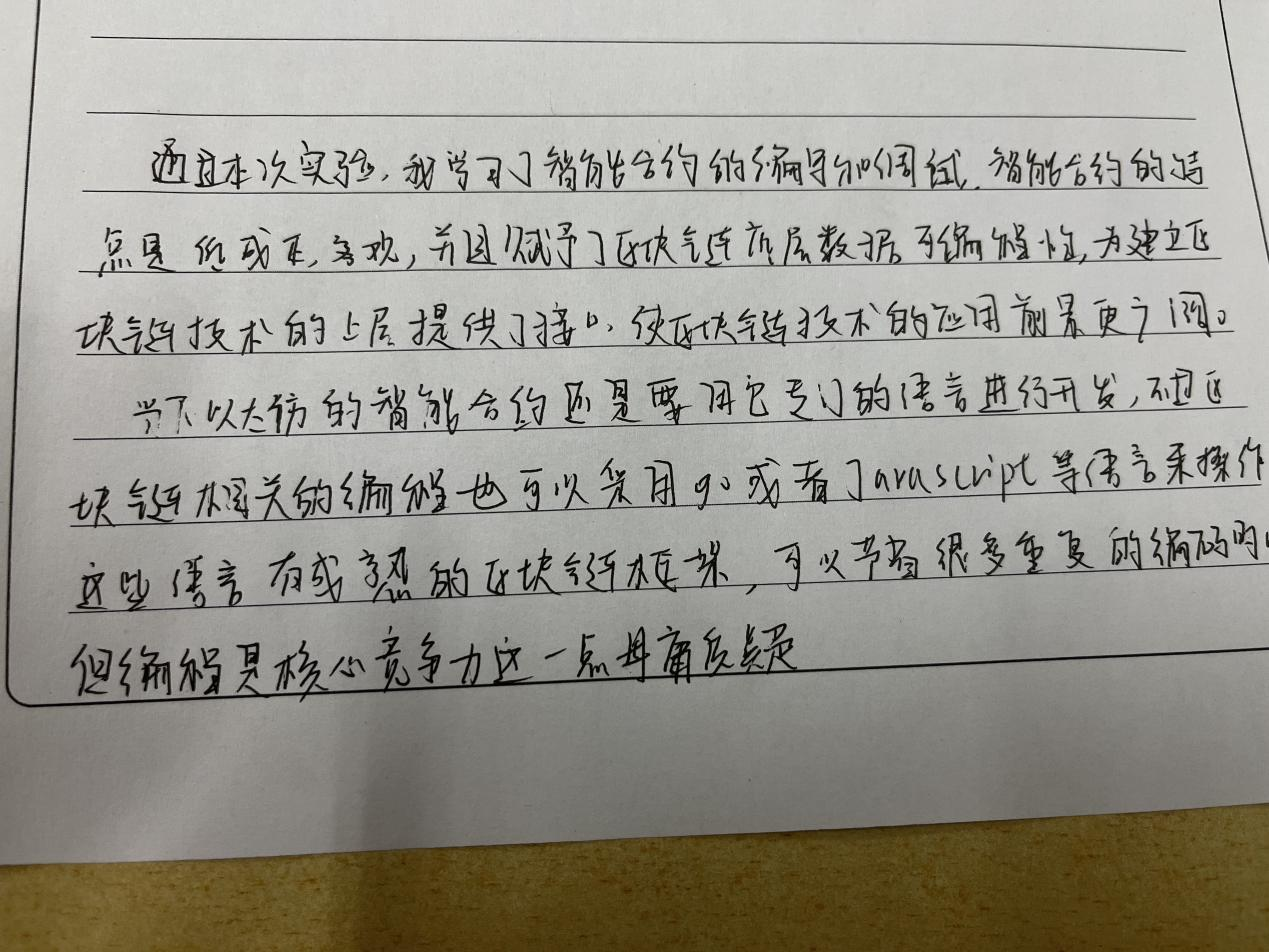 通过本次实验，我学习了智能合约的编写和调试，智能合约的特
点是低成本，客观，并且赋予了区块链底层数据可编程性，为建立区
块链技术的上层提供了接口，使区块链技术的应用前景更广阔。
当下以太坊的智能合约还是要用它专门的语言进行开发，不过区
块链相关的编程也可以采用go或者Javascript等语言来操作
这些语言有成熟的区块链框架，可以节省很多重复的编码时
但编程是核心竞争力这一点毋庸质疑